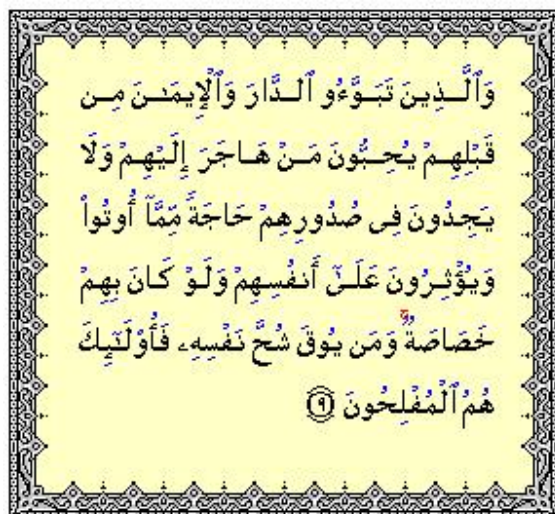 وَٱلَّـذِينَ تَبَوَّءُو ٱلـدَّارَ وَٱلْإِيمَـٰـنَ مِـن
قَبْلِهِـمْ يُحِـبُّونَ مَـنْ هَـاجَرَ إِلَيْهِـمْ وَلَا
يَـجِدُونَ فِى صُدُورِهِمْ حَاجَةً مِّمَّآ أُوتُوا۟
وَيُؤْثِـرُونَ عَلَـىٰٓ أَنفُسِهِمْ وَلَـوْ كَـانَ بِهِمْ
خَصَاصَةٌ ۚ وَمَن يُوقَ شُحَّ نَفْسِهِۦ فَأُو۟لَـٰٓئِكَ
هُمُ ٱلْمُفْلِحُونَ ﴿٩﴾